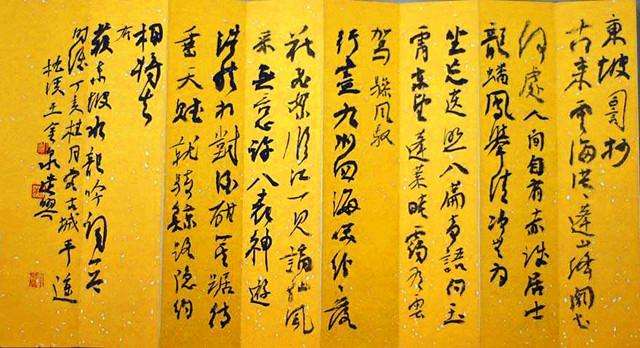 東坡詞抄
古來雲海茫茫道山絳闕知
何處人間自有赤城居士
龍蟠鳳舉清淨無為
坐忘遺照八篇奇語向玉
霄東望蓬萊晻靄有雲
駕驂風馭
行盡九州四海笑紛紛落
花飛絮臨江一見謫仙風
采無言許八表神遊
浩然相對酒酣箕踞待
垂天賦就騎鯨路隱約
相將去
東坡水龍吟詞一首
丁亥桂月古城平遙